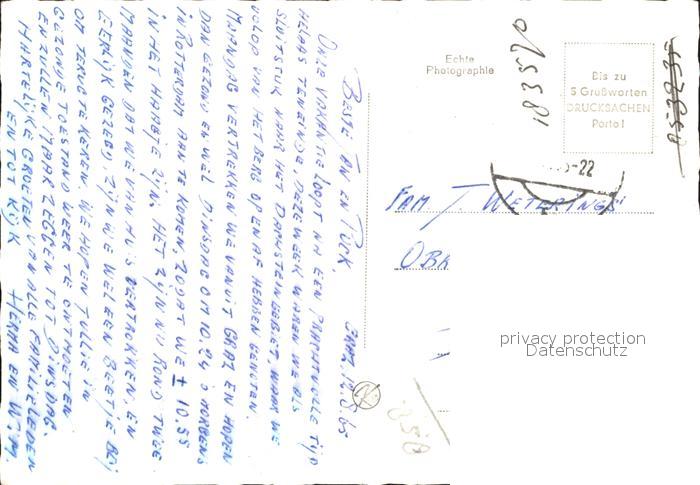 GRAZ, 12.8.65
BESTE AN EN PUCK,
ONZE VAKANTIE LOOPT NA EEN PRACHTVOLLE TIJD
HELAAS TEN EINDE. DEZE WEEK WAREN WE ALS
SLOTSTUK NAAR HET DACHSTEINGEBIET, WAAR WE
VOLOP VAN HET BERG OP EN AF HEBBEN GENOTEN.
MAANDAG VERTREKKEN WE VANUIT GRAZ EN HOPEN
DAN GEZOND EN WEL DINSDAG OM 10.04 'S MORGENS
IN ROTERDAM AAN TE KOMEN, ZODAT WE ± 10.55
IN HET HAAGJE ZIJN. HET ZIJN NU ROND TWEE
MAANDEN DAT WE VAN HUIS VERTROKKEN, EN
EERLIJK GEZEGD, ZIJN WE WEL EEN BEETJE BLIJ
OM TERUG TE KEREN. WE HOPEN JULLIE IN
GEZONDE TOESTAND WEER TE ONTMOETEN
EN ZULLEN MAAR ZEGGEN TOT DINSDAG.
HARTELIJKE GROETEN VAN ALLE FAMILIELEDEN
EN TOT KIJK HERMA EN WIM
Echte
Photographie
Bis zu
5 Grußworten
DRUCKSACHEN
Porto!
-22
FAM T. WETERINGS
OBR
privacy protection
Datenschutz